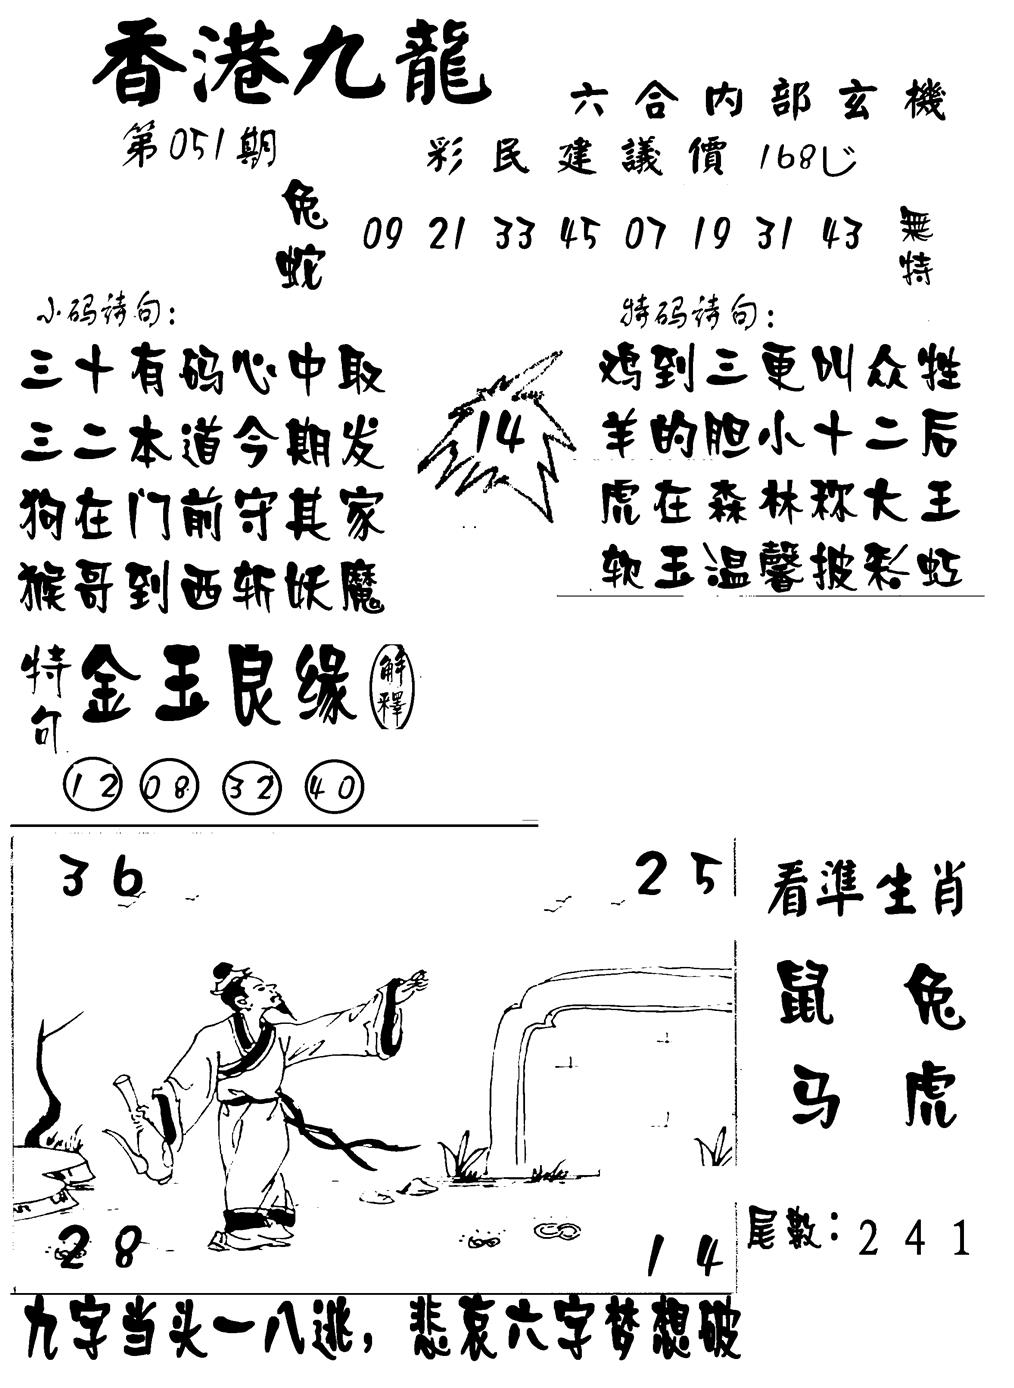 香港九龍
六合内部玄機
第051期
彩民建議價168じ
兔
蛇
09 21 33 45 07 19 31 43
無特
小码诗句：
三十有码心中取
三二本道今期发
狗在门前守其家
猴哥到西斩妖魔
14
特码诗句：
鸡到三更叫众牲
羊的胆小十二后
虎在森林称大王
软玉温馨披彩虹
特句
金玉良缘
解釋
12 08 32 40
36
25
28
14
看準生肖
鼠 兔
马 虎
尾數：241
九字当头一八逃，悲哀六字梦想破